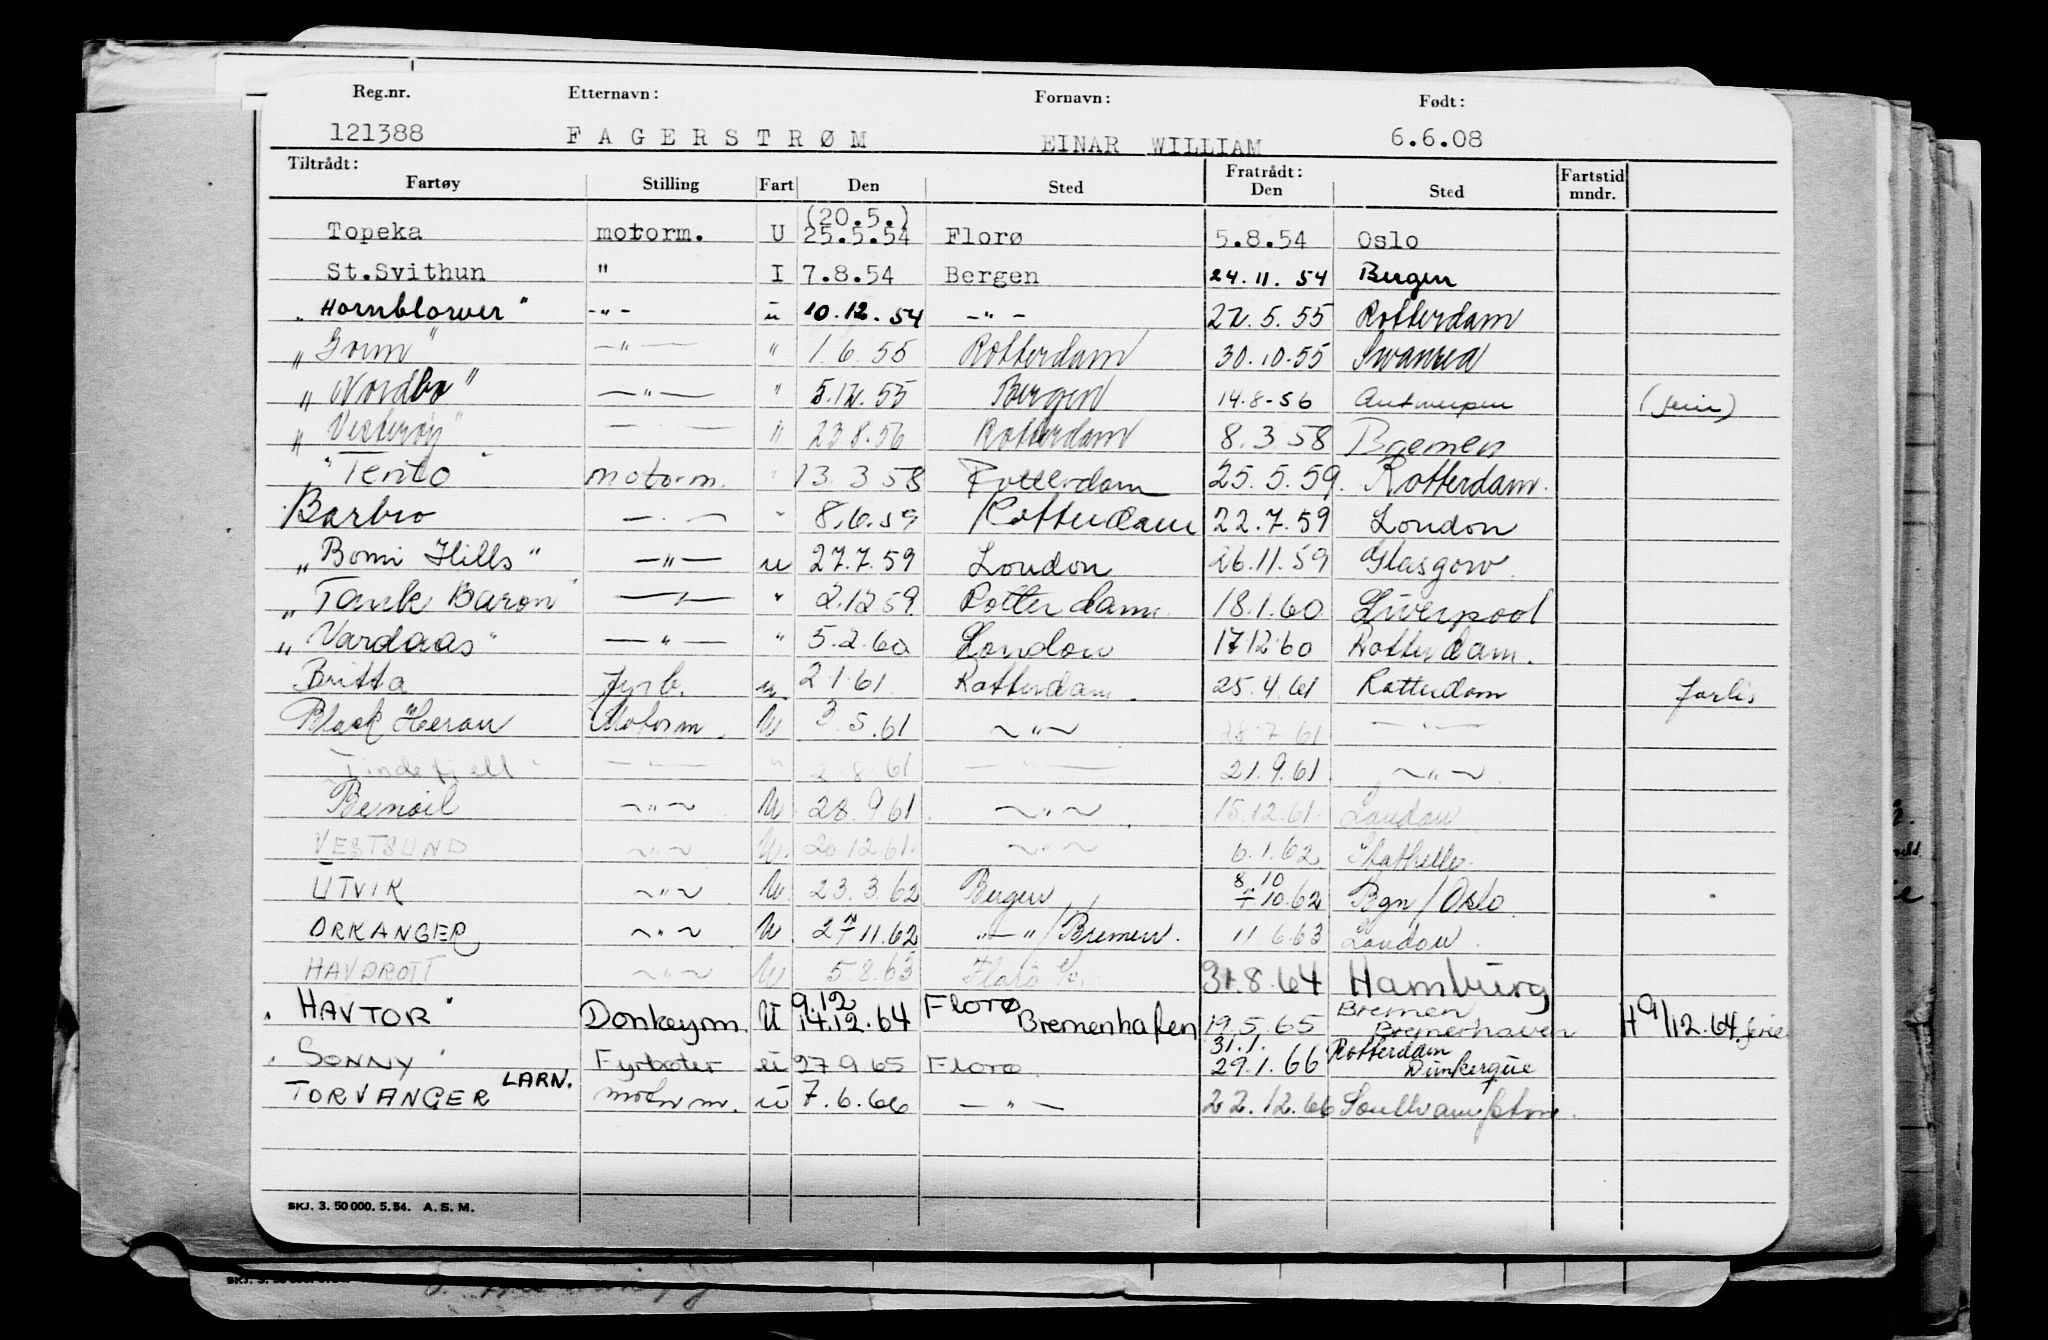 Reg.nr. Etternavn: Fornavn: Født:
121388 FAGERSTRØM EINAR WILLIAM 6.6.08
Tiltrådt: Fratrådt: Fartstid
Fartøy Stilling Fart Den Sted Den Sted mndr.
(20.5.)
Topeka motorm. U 25.5.54 Florø 5.8.54 Oslo
St.Svithun " I 7.8.54 Bergen 24.11.54 Bergen
"Hornblower" -"- u 10.12.54 -"- 22.5.55 Rotterdam
"Gorm" -"- " 1.6.55 Rotterdam 30.10.55 Swansea
"Nordbo" -"- " 5.12.55 Bergen 14.8-56 Antwerpen (ferie)
"Vesterøy" - " - " 23.8.56 Rotterdam 8.3.58 Bremen
"Terito" motorm. " 13.3.58 Rotterdam 25.5.59. Rotterdam.
Barbro -"- " 8.6.59 Rotterdam 22.7.59 London
"Bomi Hills" -"- u 27.7.59 London 26.11.59 Glasgow.
"Tank Baron" -"- " 2.12.59. Rotterdam. 18.1.60 Liverpool
"Vardaas" -"- " 5.2.60 London 17 12 60 Rotterdam.
Britta fyrb. u. 2.1.61 Rotterdam. 25.4.61 Rotterdam forlis
Black Heron Motorm. U 3.5.61 -"- 28.7.61 -"-
Tindefjell -"- " 2.8.61 -"- 21.9.61 -"-.
Bemoil -"- U 28.9.61. -"-. 15.12.61. London
VESTSUND -"- U. 20.12.61. -"- 6.1.62 Stathelle.
8 10
UTVIK -"- U 23.3.62. Bergen 7 10.62 Bgn/Oslo.
ORKANGER -"- U 27 11.62 "-"/Bremen. 11 6.63 London.
HAVDROTT -"- U 5 8.63 Florø 31.8.64 Hamburg
9.12 Florø Bremen
"HAVTOR" Donkeym. U 14.12.64 Bremenhafen 19.5.65 Bremerhaven H 9/12.64 ferie
31.1. Rotterdam
"SONNY" Fyrbøter u 27 9 65 Florø. 29.1.66 Dünkerque
TORVANGER LARN. motorm. u 7.6.66 -"- 22.12.66 Southampton.
SKJ. 3. 50 000. 5.54. A.S.M.